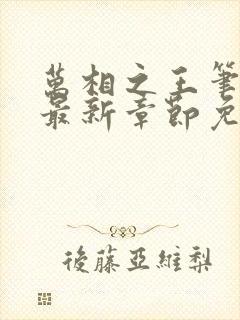 萬相之王筆
最新章節免
後藤亞維梨